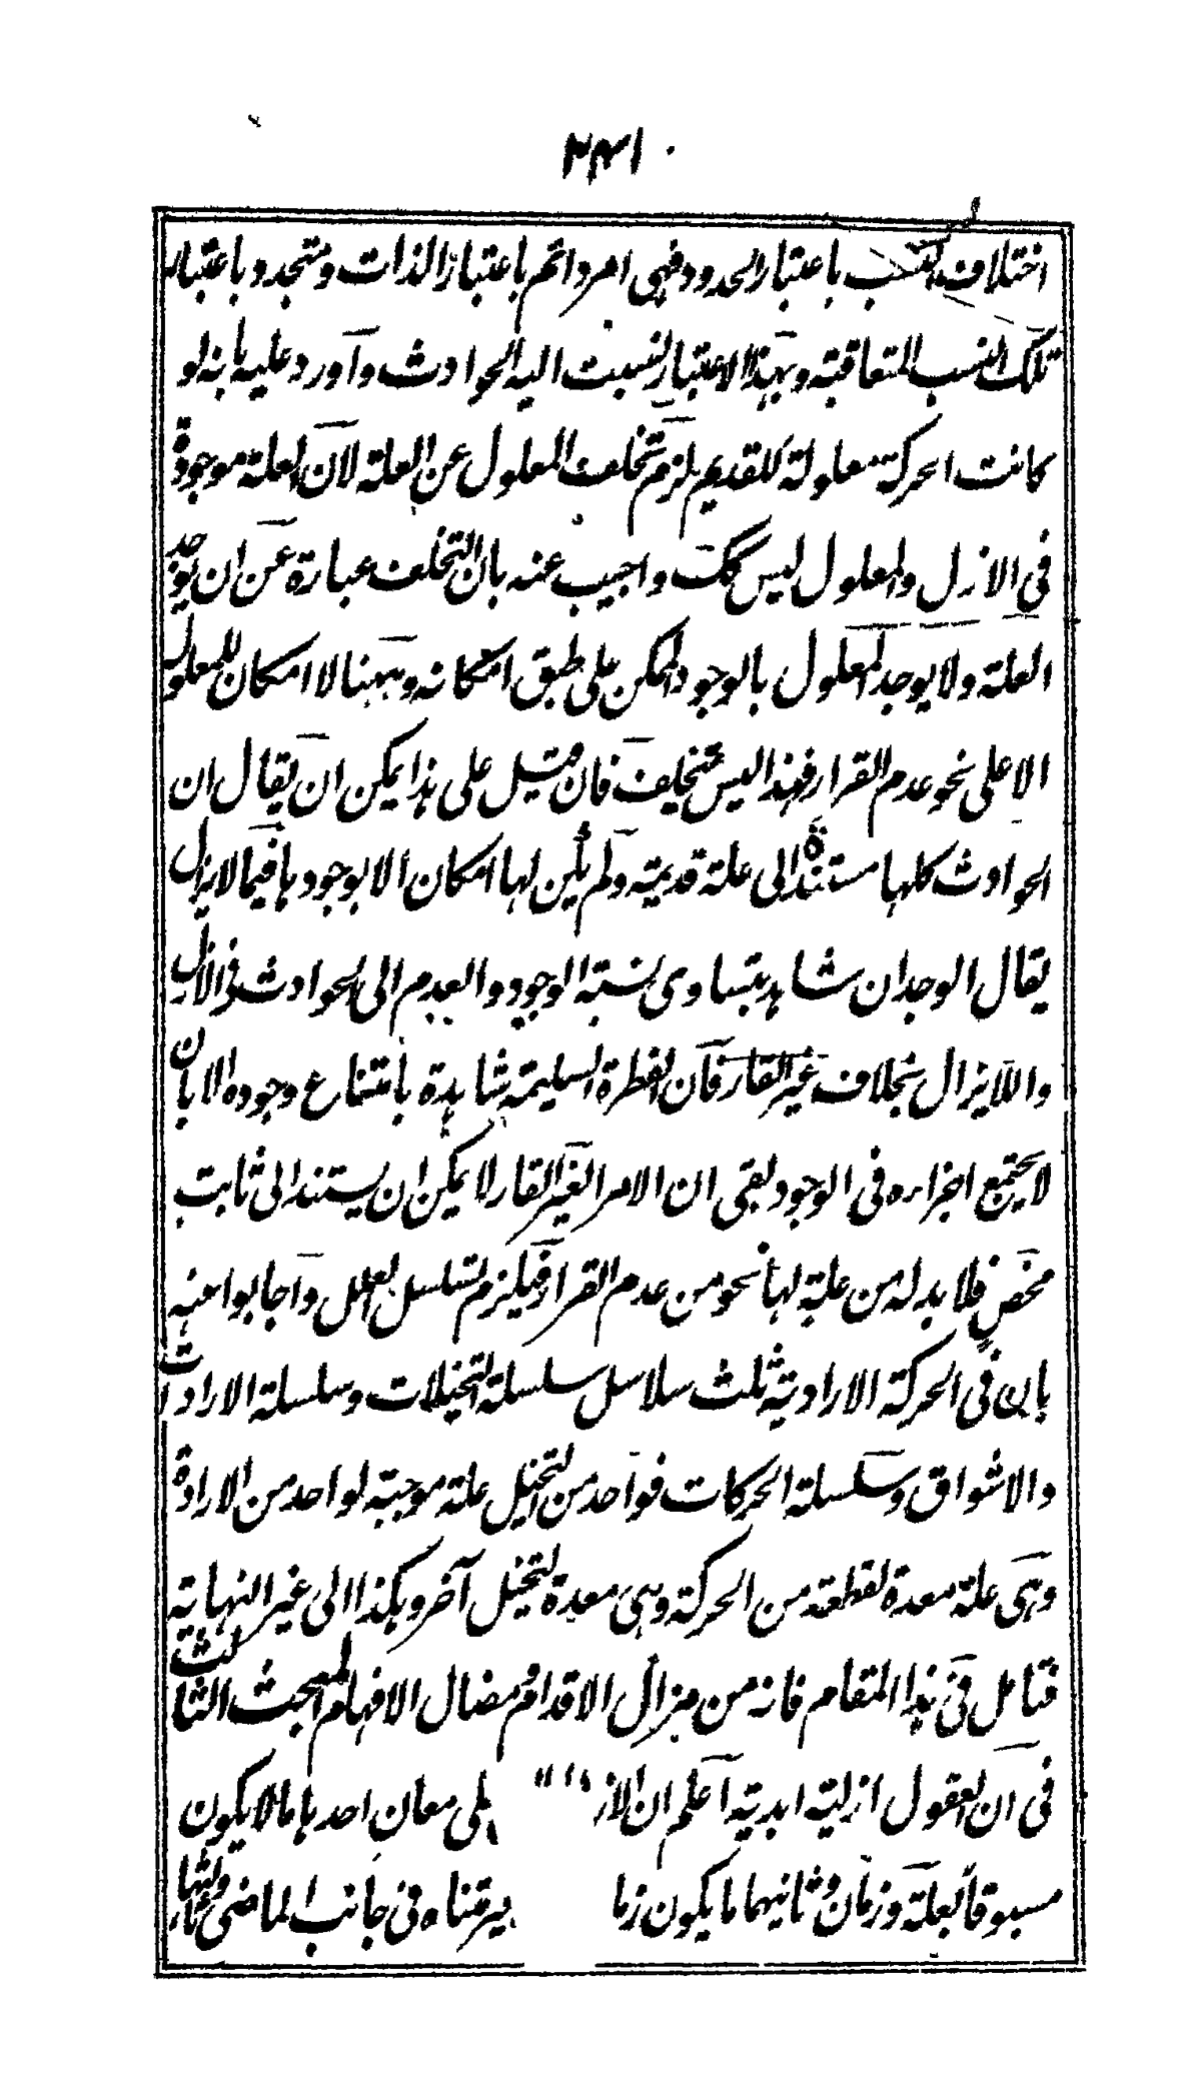 ۲۴۱
اختلاف النسب باعتبار الحدود فهى امر دائم باعتبار الذات ومتجدد باعتبار
تلك النسب المتعاقبة وبهذا الاعتبار نسبت اليه الحوادث وأورد عليه بانه لو
كانت الحركة معلولة للقديم لزم تخلف المعلول عن العلة لان العلة موجودة
فى الازل والمعلول ليس كك واجيب عنه بان التخلف عبارة عن ان يوجد
العلة ولا يوجد المعلول بالوجود الممكن على طبق امكانه وههنا لا امكان للمعلول
الا على نحو عدم القرار فهذا ليس بتخلف فان قيل على هذا يمكن ان يقال ان
الحوادث كلها مستندة الى علة قديمة ولم يكن لها امكان الا بوجودها فيما لا يزال
يقال الوجدان شاهد بتساوى نسبة الوجود والعدم الى الحوادث فى الازل
واللايزال بخلاف غير القار فان الفطرة السليمة شاهدة بامتناع وجوده الا بان
لا يجتمع اجزاءه فى الوجود بقى ان الامر الغير القار لا يمكن ان يستند الى ثابت
محض فلا بد له من علة لها نحو من عدم القرار فيلزم تسلسل العلل واجابوا عنه
بان فى الحركة الارادية ثلث سلاسل سلسلة التخيلات وسلسلة الارادات
والاشواق وسلسلة الحركات فواحد من التخيل علة موجبة لواحد من الارادة
وهى علة معدة لقطعة من الحركة وهى معدة لتخيل آخر وهكذا الى غير النهاية
فتامل فى هذا المقام فانه من مزال الاقدام ومضال الافهام المبحث الثالث
فى ان العقول ازلية ابدية اعلم ان الاز على معان احدها ما لا يكون
مسبوقا بعلة وزمان وثانيهما ما يكون زما غير متناه فى جانب الماضى وثالثها